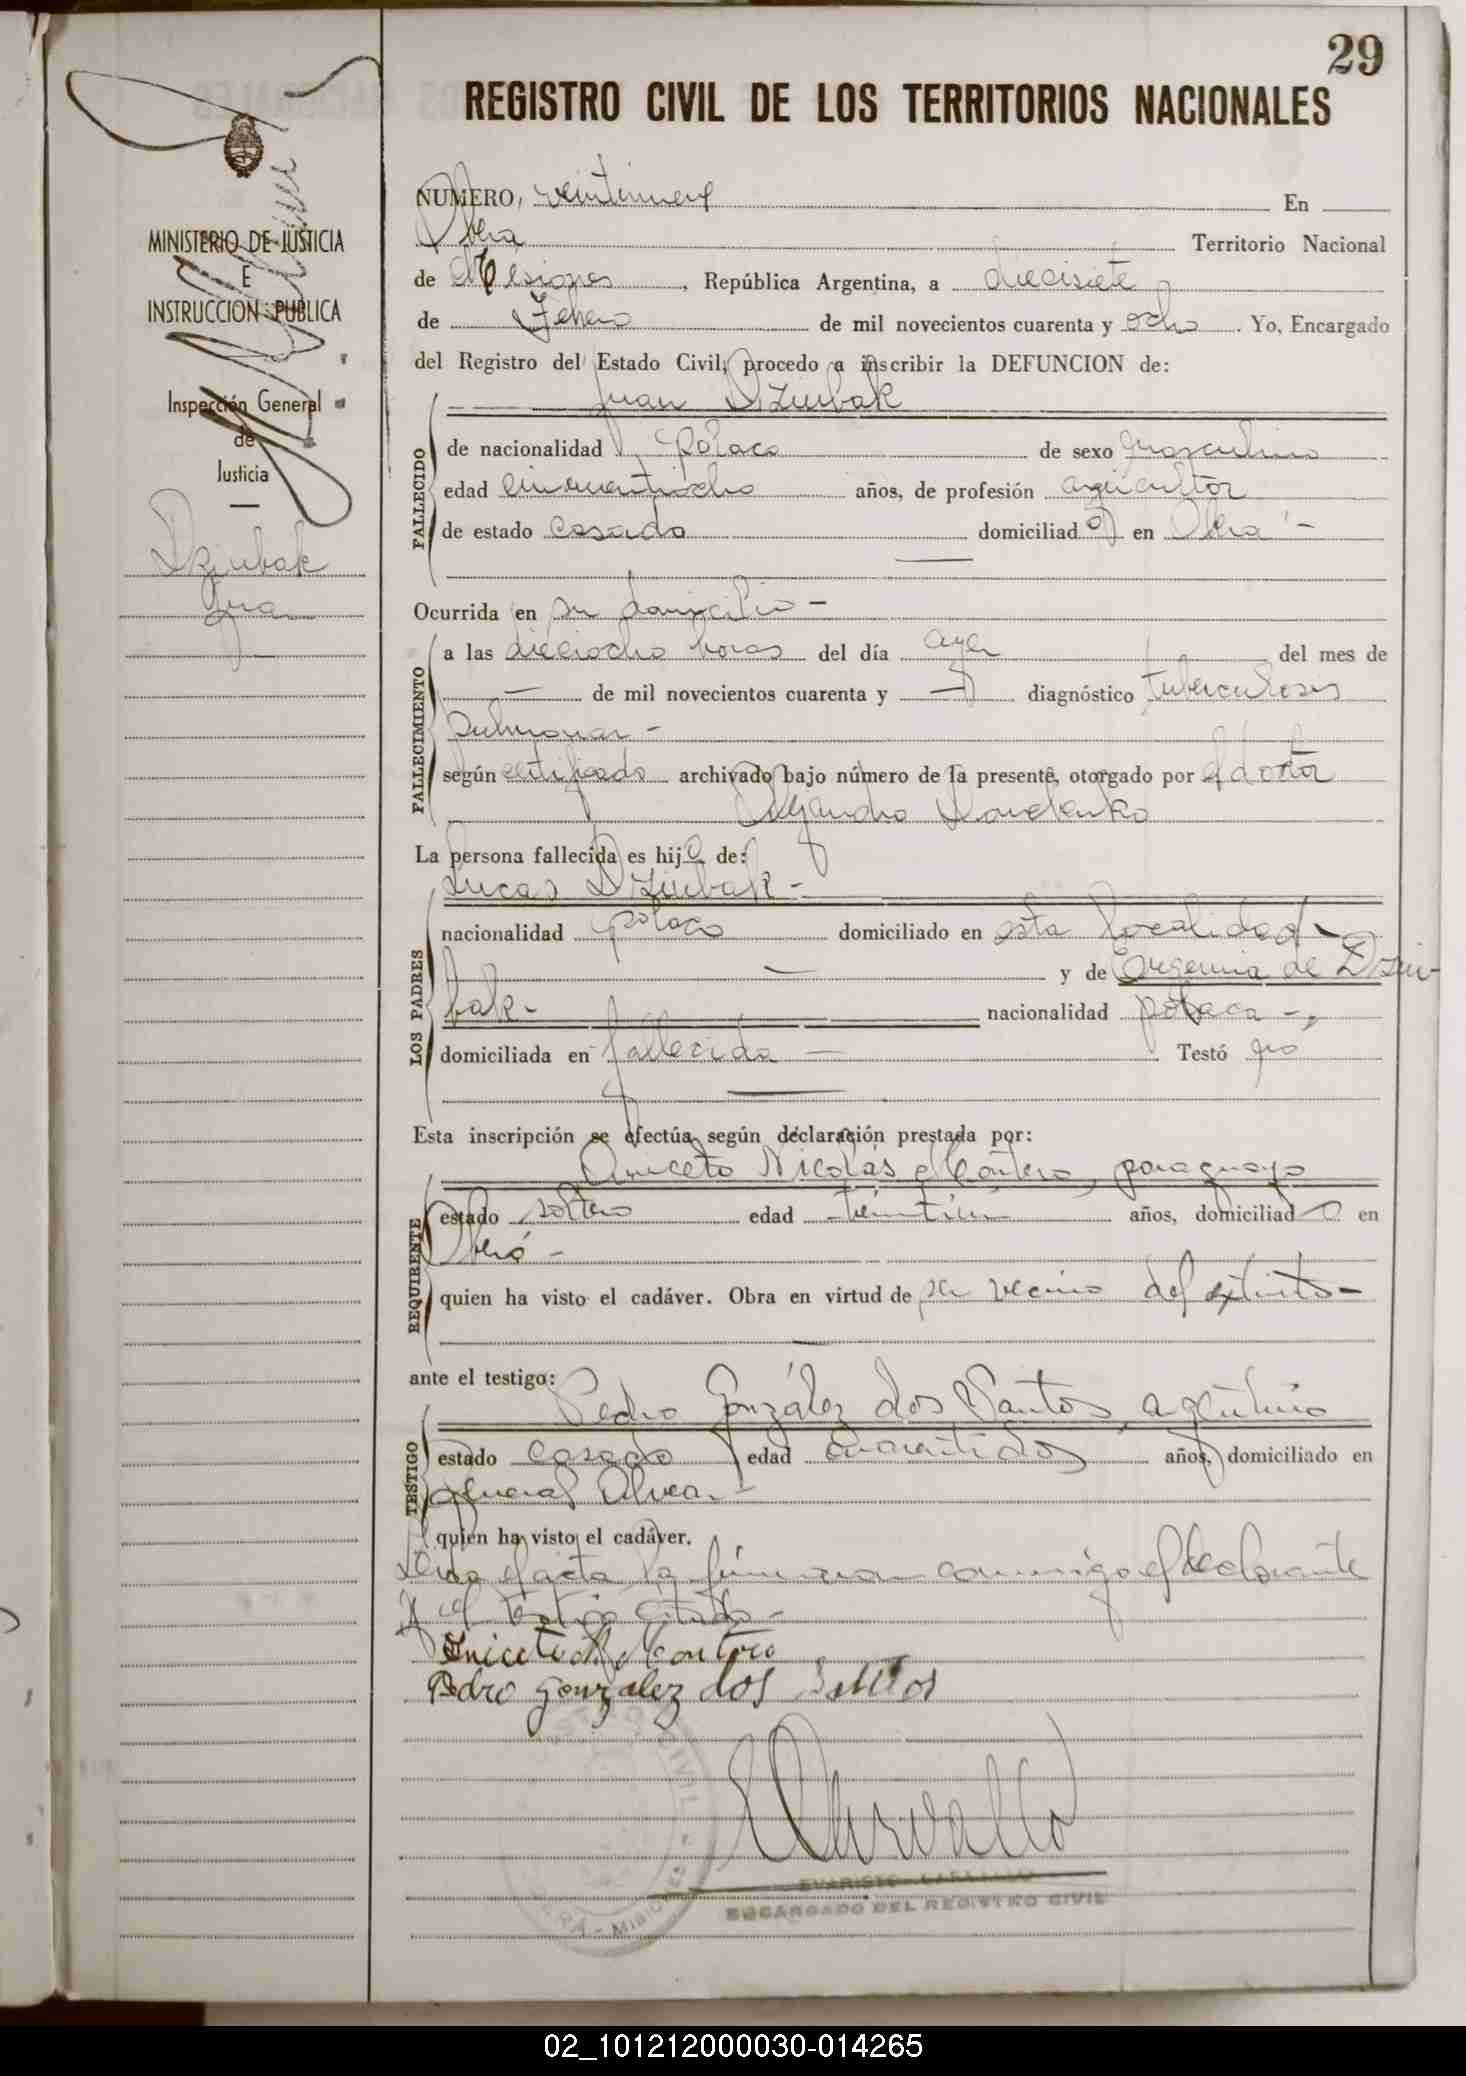 29
REGISTRO CIVIL DE LOS TERRITORIOS NACIONALES
MINISTERIO DE JUSTICIA
E
INSTRUCCION PUBLICA
Inspección General
de
Justicia
Dziubak
Juan
NUMERO, veintinueve En
Oberá Territorio Nacional
de Misiones, República Argentina, a diecisiete
de Febrero de mil novecientos cuarenta y ocho. Yo, Encargado
del Registro del Estado Civil, procedo a inscribir la DEFUNCION de:
Juan Dziubak
FALLECIDO
de nacionalidad polaco de sexo masculino
edad cincuentiocho años, de profesión agricultor
de estado casado domiciliado en Oberá -
Ocurrida en su domicilio -
FALLECIMIENTO
a las dieciocho horas del día ayer del mes de
— de mil novecientos cuarenta y — diagnóstico tuberculosis
pulmonar -
según certificado archivado bajo número de la presente, otorgado por el doctor
Alejandro
La persona fallecida es hijo de:
LOS PADRES
Lucas Dziubak -
nacionalidad polaco domiciliado en esta localidad -
— y de Eugenia de Dziu-
bak - nacionalidad polaca -,
domiciliada en fallecida — Testó no
Esta inscripción se efectúa según declaración prestada por:
REQUIRENTE
Aniceto Nicolás Montero, paraguayo
estado soltero edad años, domiciliado en
Oberá -
quien ha visto el cadáver. Obra en virtud de ser vecino del extinto -
ante el testigo:
TESTIGO
Pedro González dos Santos, argentino
estado casado edad cuarentidos años, domiciliado en
General Alvear -
quien ha visto el cadáver.
Leida el acta la firmaron conmigo el declarante
y el testigo citado -
Aniceto N. Montero
Pedro Gonzalez dos Santos
REGISTRO CIVIL
OBERÁ - MISIONES
ECarvallo
EVARISTO CARVALLO
ENCARGADO DEL REGISTRO CIVIL
02_101212000030-014265